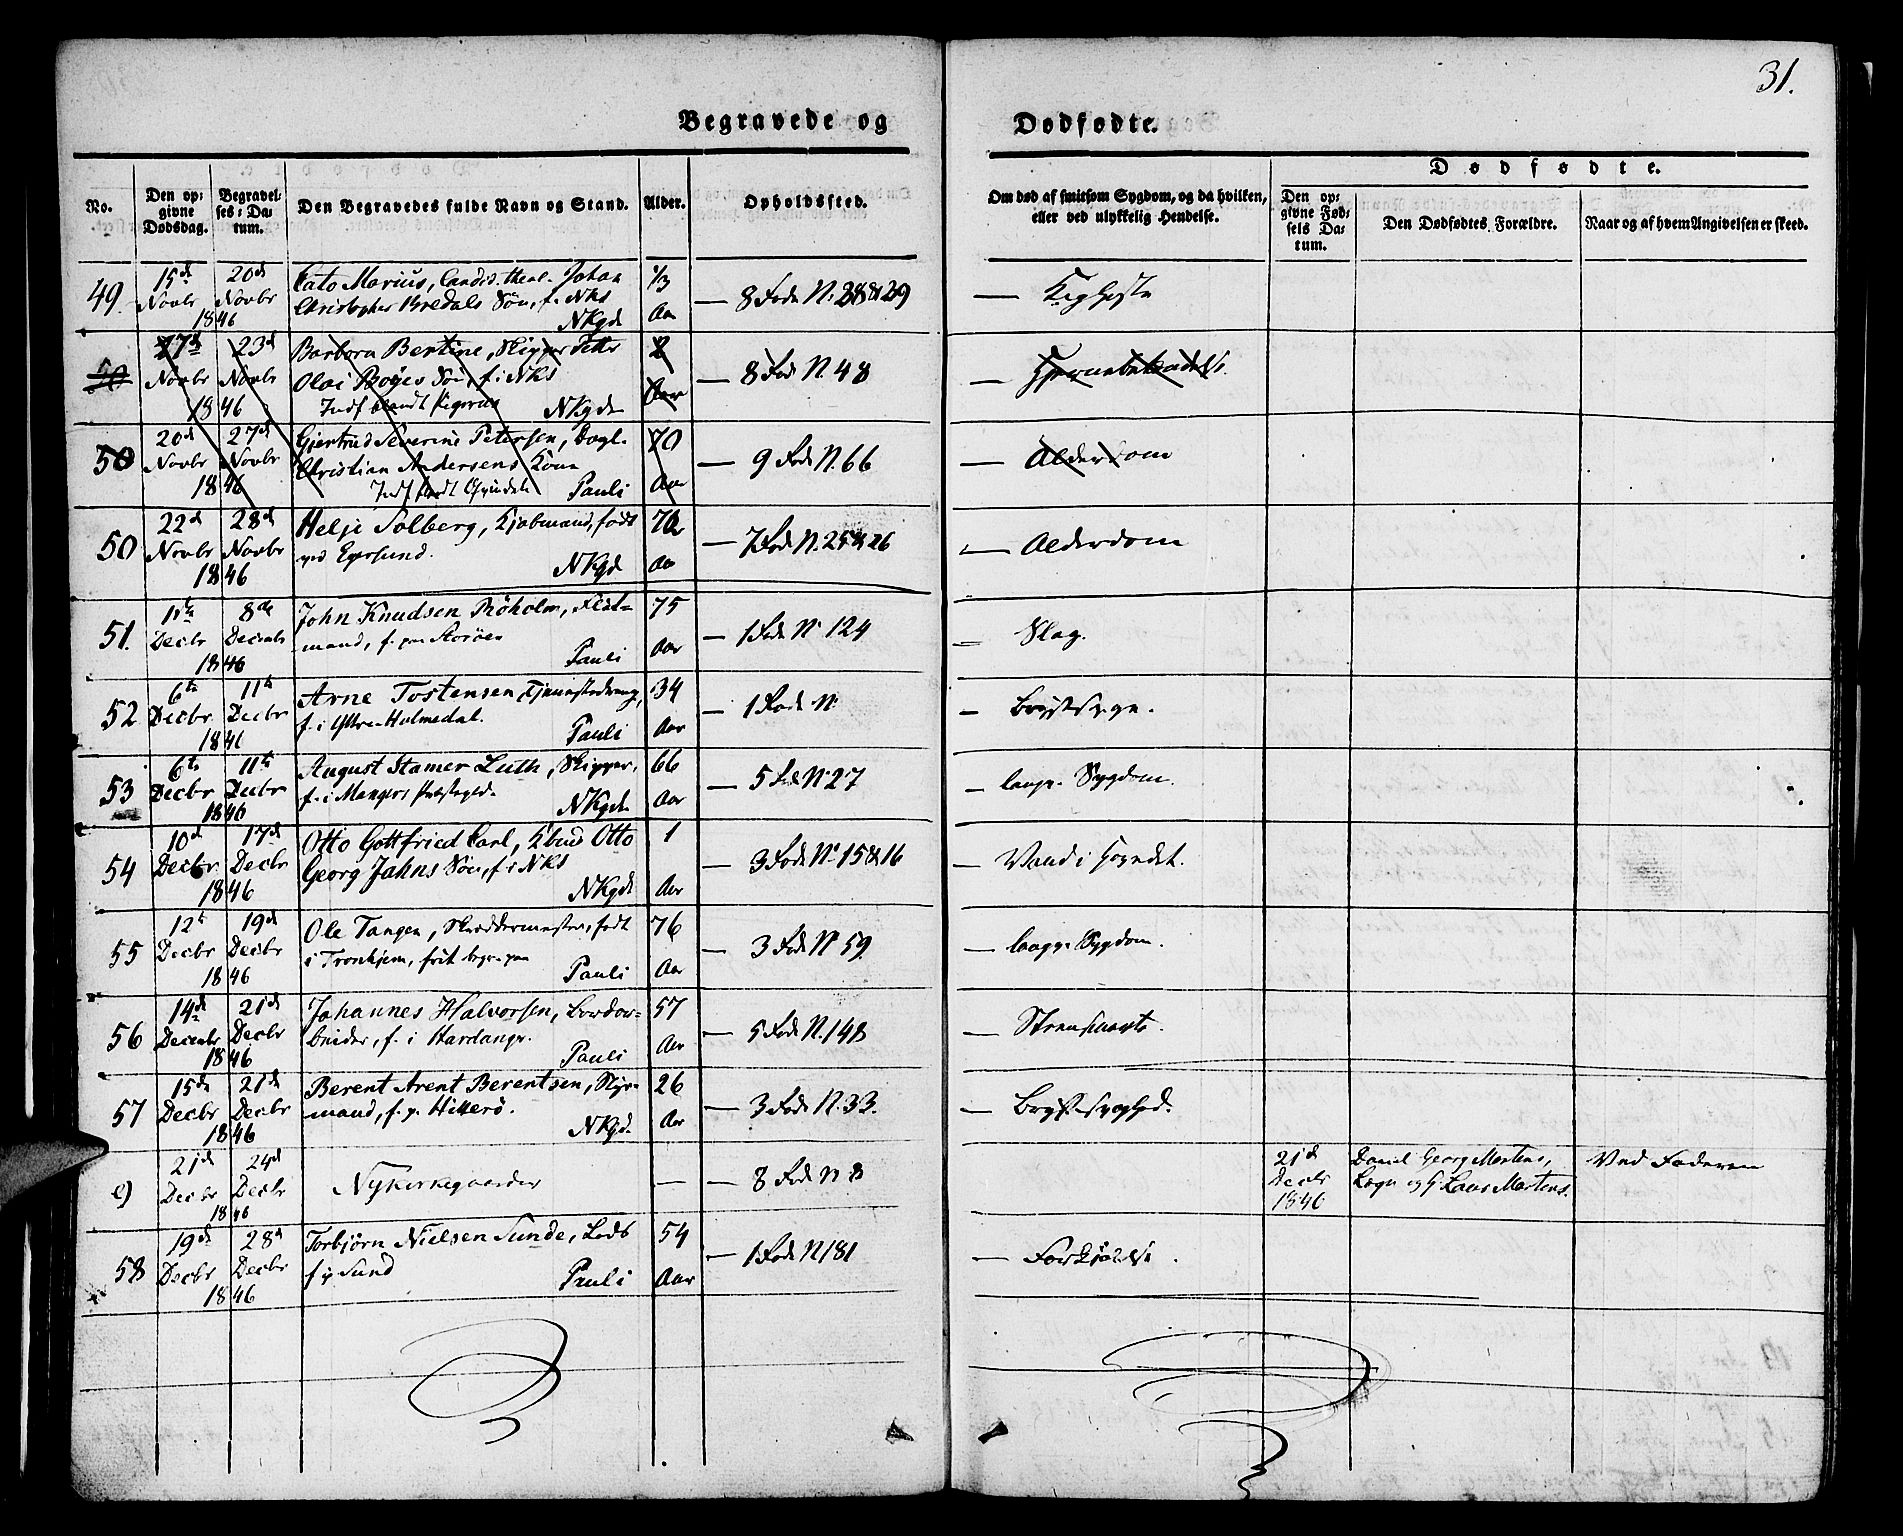 31.
Begravede og Dødfødte.
Dødfødte.
No.
Den op-
givne
Dødsdag.
Begravel-
ses-Da-
tum.
Den Begravedes fulde Navn og Stand.
Alder.
Opholdssted.
Om død af smitsom Sygdom, og da hvilken,
eller ved ulykkelig Hendelse.
Den op-
givne Fød-
sels Da-
tum.
Den Dødfødtes Forældre.
Naar og af hvem Angivelsen er skeed.
49. 15de Novbr 1846 20de Novbr Cato Marius, Candid. theol. Johan
Christopher Bredals Søn, f. NKS
NKgd 1/3 Aar
— 8 Rode N. 28 & 29 — Kighoste
50 17de Novbr 1846 23de Novbr Barbara Bertine, Skipper Peter
Olai Søn, f. i NKS
Indf blandt Pigerne NKgd 2 Aar
— 8 Rode N. 48
50 20de Novbr 1846 27de Novbr Gjertrud Severine Petersen, Dagl.
Christian Andersens Kone
Indf blandt Qvindek. Pauli 70 Aar
— 9 Rode N. 66 — Alderdom
50 22de Novbr 1846 28de Novbr Helje Solberg, Kjøbmand, født
ved Egersund.
NKgd Aar
— 7 Rode N. 25 & 26 — Alderdom
51. Decbr 1846 8de Decembr John Knudsen Røholm, Fløt-
mand, f. paa Storøen
Pauli 75 Aar
— 1 Rode N. 124 — Slag.
52 6te Decbr 1846 11te Decbr Arne Tostensen,
f. i Yttre Holmedal.
Pauli 34 Aar
— 1 Rode N. — Brystsyge.
53 6te Decbr 1846 11te Decbr August Stamer Luth, Skipper,
f. i Mangers Præstegjd.
NKgd. 66 Aar
— 5 Rode N. 27 — langv. Sygdom.
54 10de Decbr 1846 17de Decbr Otto Gottfried Carl, Otto
Georg Jahns Søn, f. i NKS
NKgd 1 Aar
— 3 Rode N. 15 & 16 — Vand i Hovedet.
55 12te Decbr 1846 19de Decbr Ole Tangen, Skræddermester, født
i Tronhjem, frit begr. paa
Pauli 76 Aar
— 3 Rode N. 59 — langv. Sygdom.
56 14de Decembr 1846 21de Decbr Johannes Halvorsen, Bordar-
beider, f. i Hardanger.
Pauli 57 Aar
— 5 Rode N. 148
57 15de Decbr 1846 21de Decbr Berent Arent Berentsen, Styr-
mand, f. p. Hitterø.
NKgd. 26 Aar
— 3 Rode N. 33. — Brystsyghed.
e) 21de Decbr 1846 24de Decbr Nykirkegaarden — — 8 Rode N. 8
21de Decbr 1846 Daniel Georg Martens,
og Martens. Ved Faderen
58 19de Decbr 1846 28de Decbr Torbjørn Nielsen Sunde, Lods
f. p. Sund
Pauli 54 Aar
— 1 Rode N. 181 — Forkjølelse.